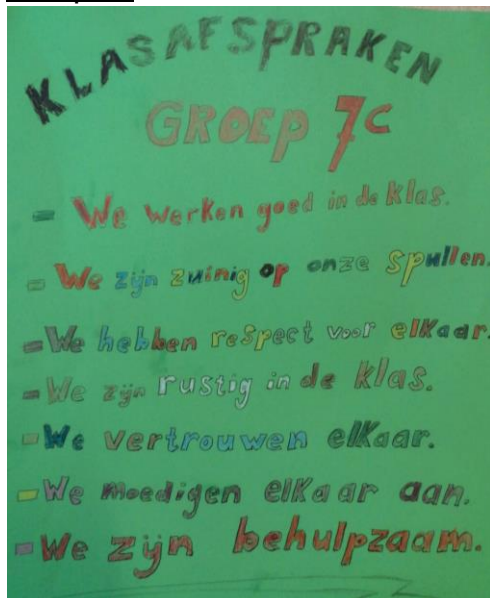 KLASAFSPRAKEN
GROEP 7C
- We werken goed in de klas.
- We zijn zuinig op onze spullen.
- We hebben respect voor elkaar.
- We zijn rustig in de klas.
- We vertrouwen elkaar.
- We moedigen elkaar aan.
- We zijn behulpzaam.